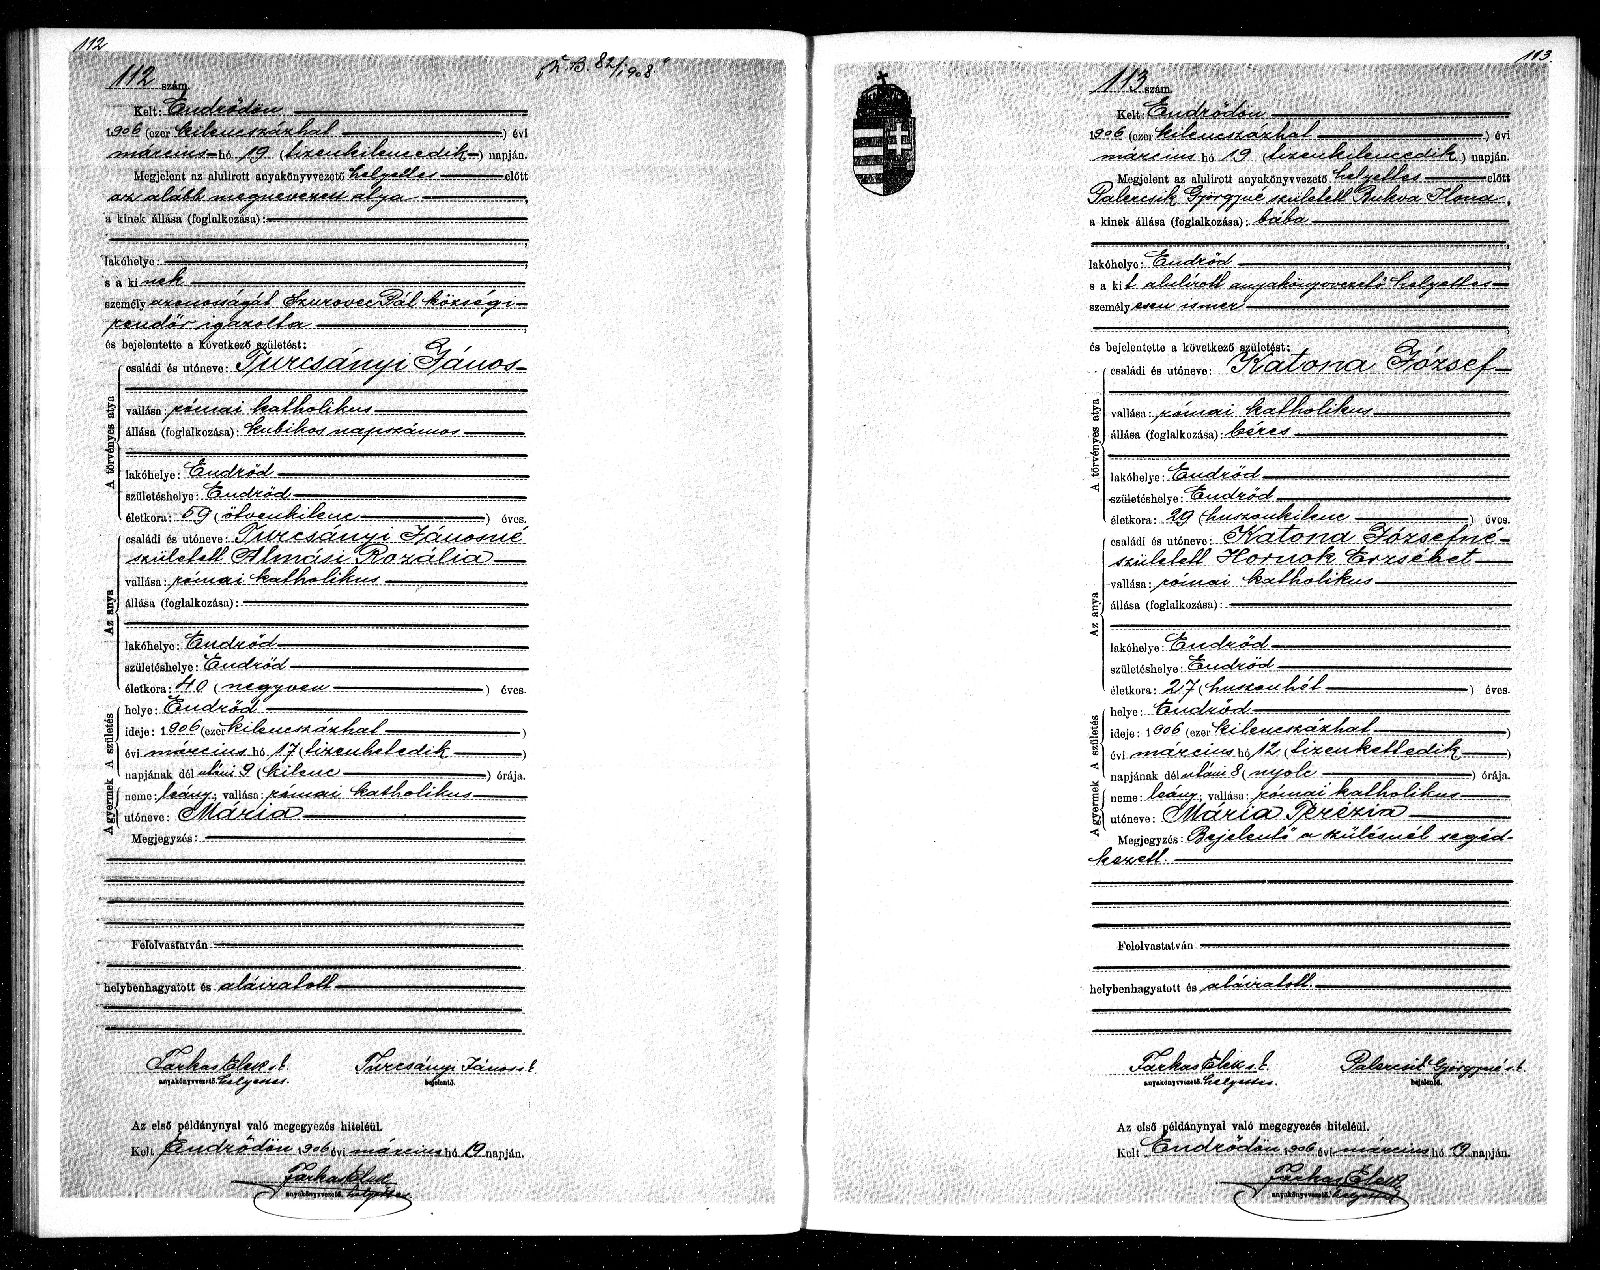 112
112 szám.
B. 82/1908
Kelt: Endrődön
1906 (ezer kilencszázhat) évi
március hó 19 (tizenkilencedik) napján.
Megjelent az alulírott anyakönyvvezető helyettes előtt
az alább megnevezett atya,
a kinek állása (foglalkozása):
lakóhelye:
s a kinek
személy azonosságát Szurovec Pál községi
rendőr igazolta
és bejelentette a következő születést:
A törvényes atya
családi és utóneve: Turcsányi János
vallása: római katholikus
állása (foglalkozása): kubikos napszámos
lakóhelye: Endrőd
születéshelye: Endrőd
életkora: 59 (ötvenkilenc) éves.
Az anya
családi és utóneve: Turcsányi Jánosné
született Almási Rozália
vallása: római katholikus
állása (foglalkozása):
lakóhelye: Endrőd
születéshelye: Endrőd
életkora: 40 (negyven) éves.
A születés
helye: Endrőd
ideje: 1906 (ezer kilencszázhat)
évi március hó 17 (tizenhetedik)
napjának dél utáni 9 (kilenc) órája.
A gyermek
neme: leány; vallása: római katholikus
utóneve: Mária
Megjegyzés:
Felolvastatván
helybenhagyatott és aláiratott
Farkas Elek s.k. Turcsányi János s.k.
anyakönyvvezető helyettes. bejelentő.
Az első példánynyal való megegyezés hiteléül.
Kelt Endrődön 1906 évi március hó 19 napján.
Farkas Elek
anyakönyvvezető helyettes
113.
113 szám.
Kelt: Endrődön
1906 (ezer kilencszázhat) évi
március hó 19 (tizenkilencedik) napján.
Megjelent az alulírott anyakönyvvezető helyettes előtt
Palercsik Györgyné született Bukva Ilona,
a kinek állása (foglalkozása): bába
lakóhelye: Endrőd
s a kit alulírott anyakönyvvezető helyettes
személyesen ismer
és bejelentette a következő születést:
A törvényes atya
családi és utóneve: Katona József
vallása: római katholikus
állása (foglalkozása): béres
lakóhelye: Endrőd
születéshelye: Endrőd
életkora: 29 (huszonkilenc) éves.
Az anya
családi és utóneve: Katona Józsefné
született Hornok Erzsébet
vallása: római katholikus
állása (foglalkozása):
lakóhelye: Endrőd
születéshelye: Endrőd
életkora: 27 (huszonhét) éves.
A születés
helye: Endrőd
ideje: 1906 (ezer kilencszázhat)
évi március hó 12 (tizenkettedik)
napjának dél utáni 8 (nyolc) órája.
A gyermek
neme: leány; vallása: római katholikus
utóneve: Mária Terézia
Megjegyzés: Bejelentő a szülésnél segéd-
kezett.
Felolvastatván
helybenhagyatott és aláiratott.
Farkas Elek s.k. Palercsik Györgyné s.k.
anyakönyvvezető helyettes. bejelentő.
Az első példánynyal való megegyezés hiteléül.
Kelt Endrődön 1906 évi március hó 19 napján.
Farkas Elek
anyakönyvvezető helyettes